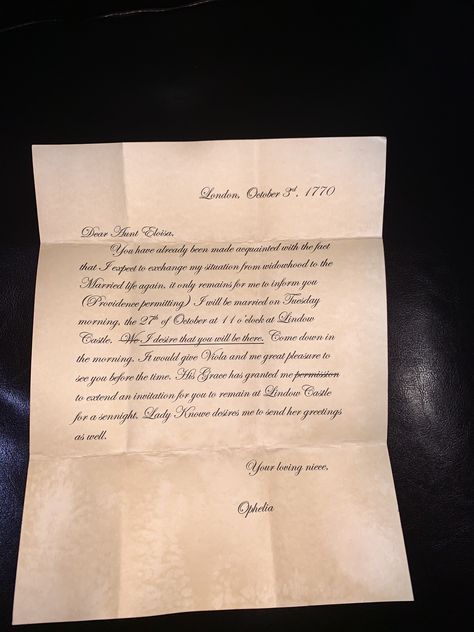 London, October 3rd, 1770
Dear Aunt Eloisa,
You have already been made acquainted with the fact
that I expect to exchange my situation from widowhood to the
Married life again, it only remains for me to inform you
(Providence permitting) I will be married on Tuesday
morning, the 27th of October at 11 o'clock at Lindow
Castle. We I desire that you will be there. Come down in
the morning. It would give Viola and me great pleasure to
see you before the time. His Grace has granted me permission
to extend an invitation for you to remain at Lindow Castle
for a sennight. Lady Knowe desires me to send her greetings
as well.
Your loving niece,
Ophelia